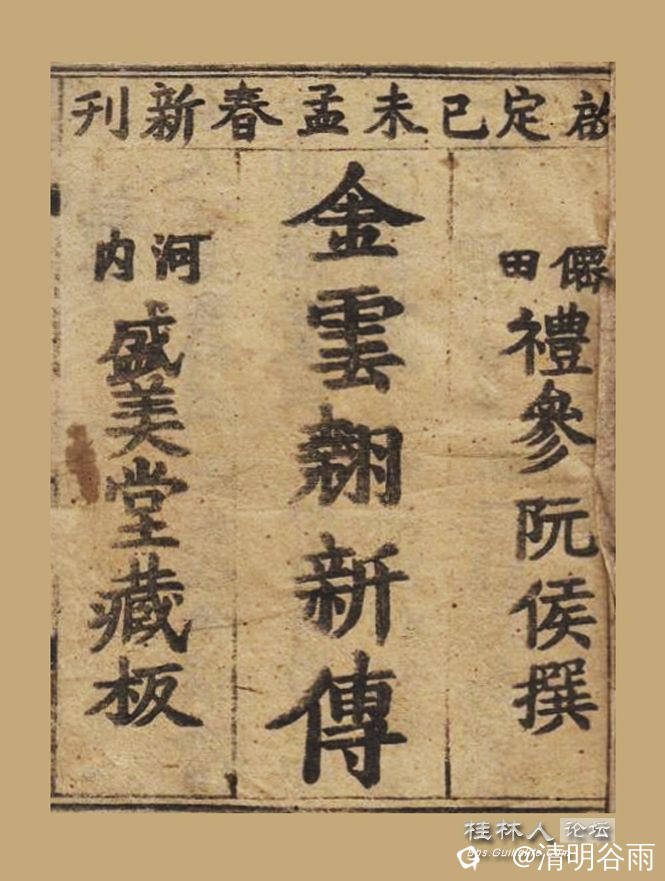 啟定己未孟春新刊
僊田
禮參阮侯撰
金雲翹新傳
河内
盛美堂藏板
桂林人论坛
bbs.Guilinlife.com
@清明谷雨